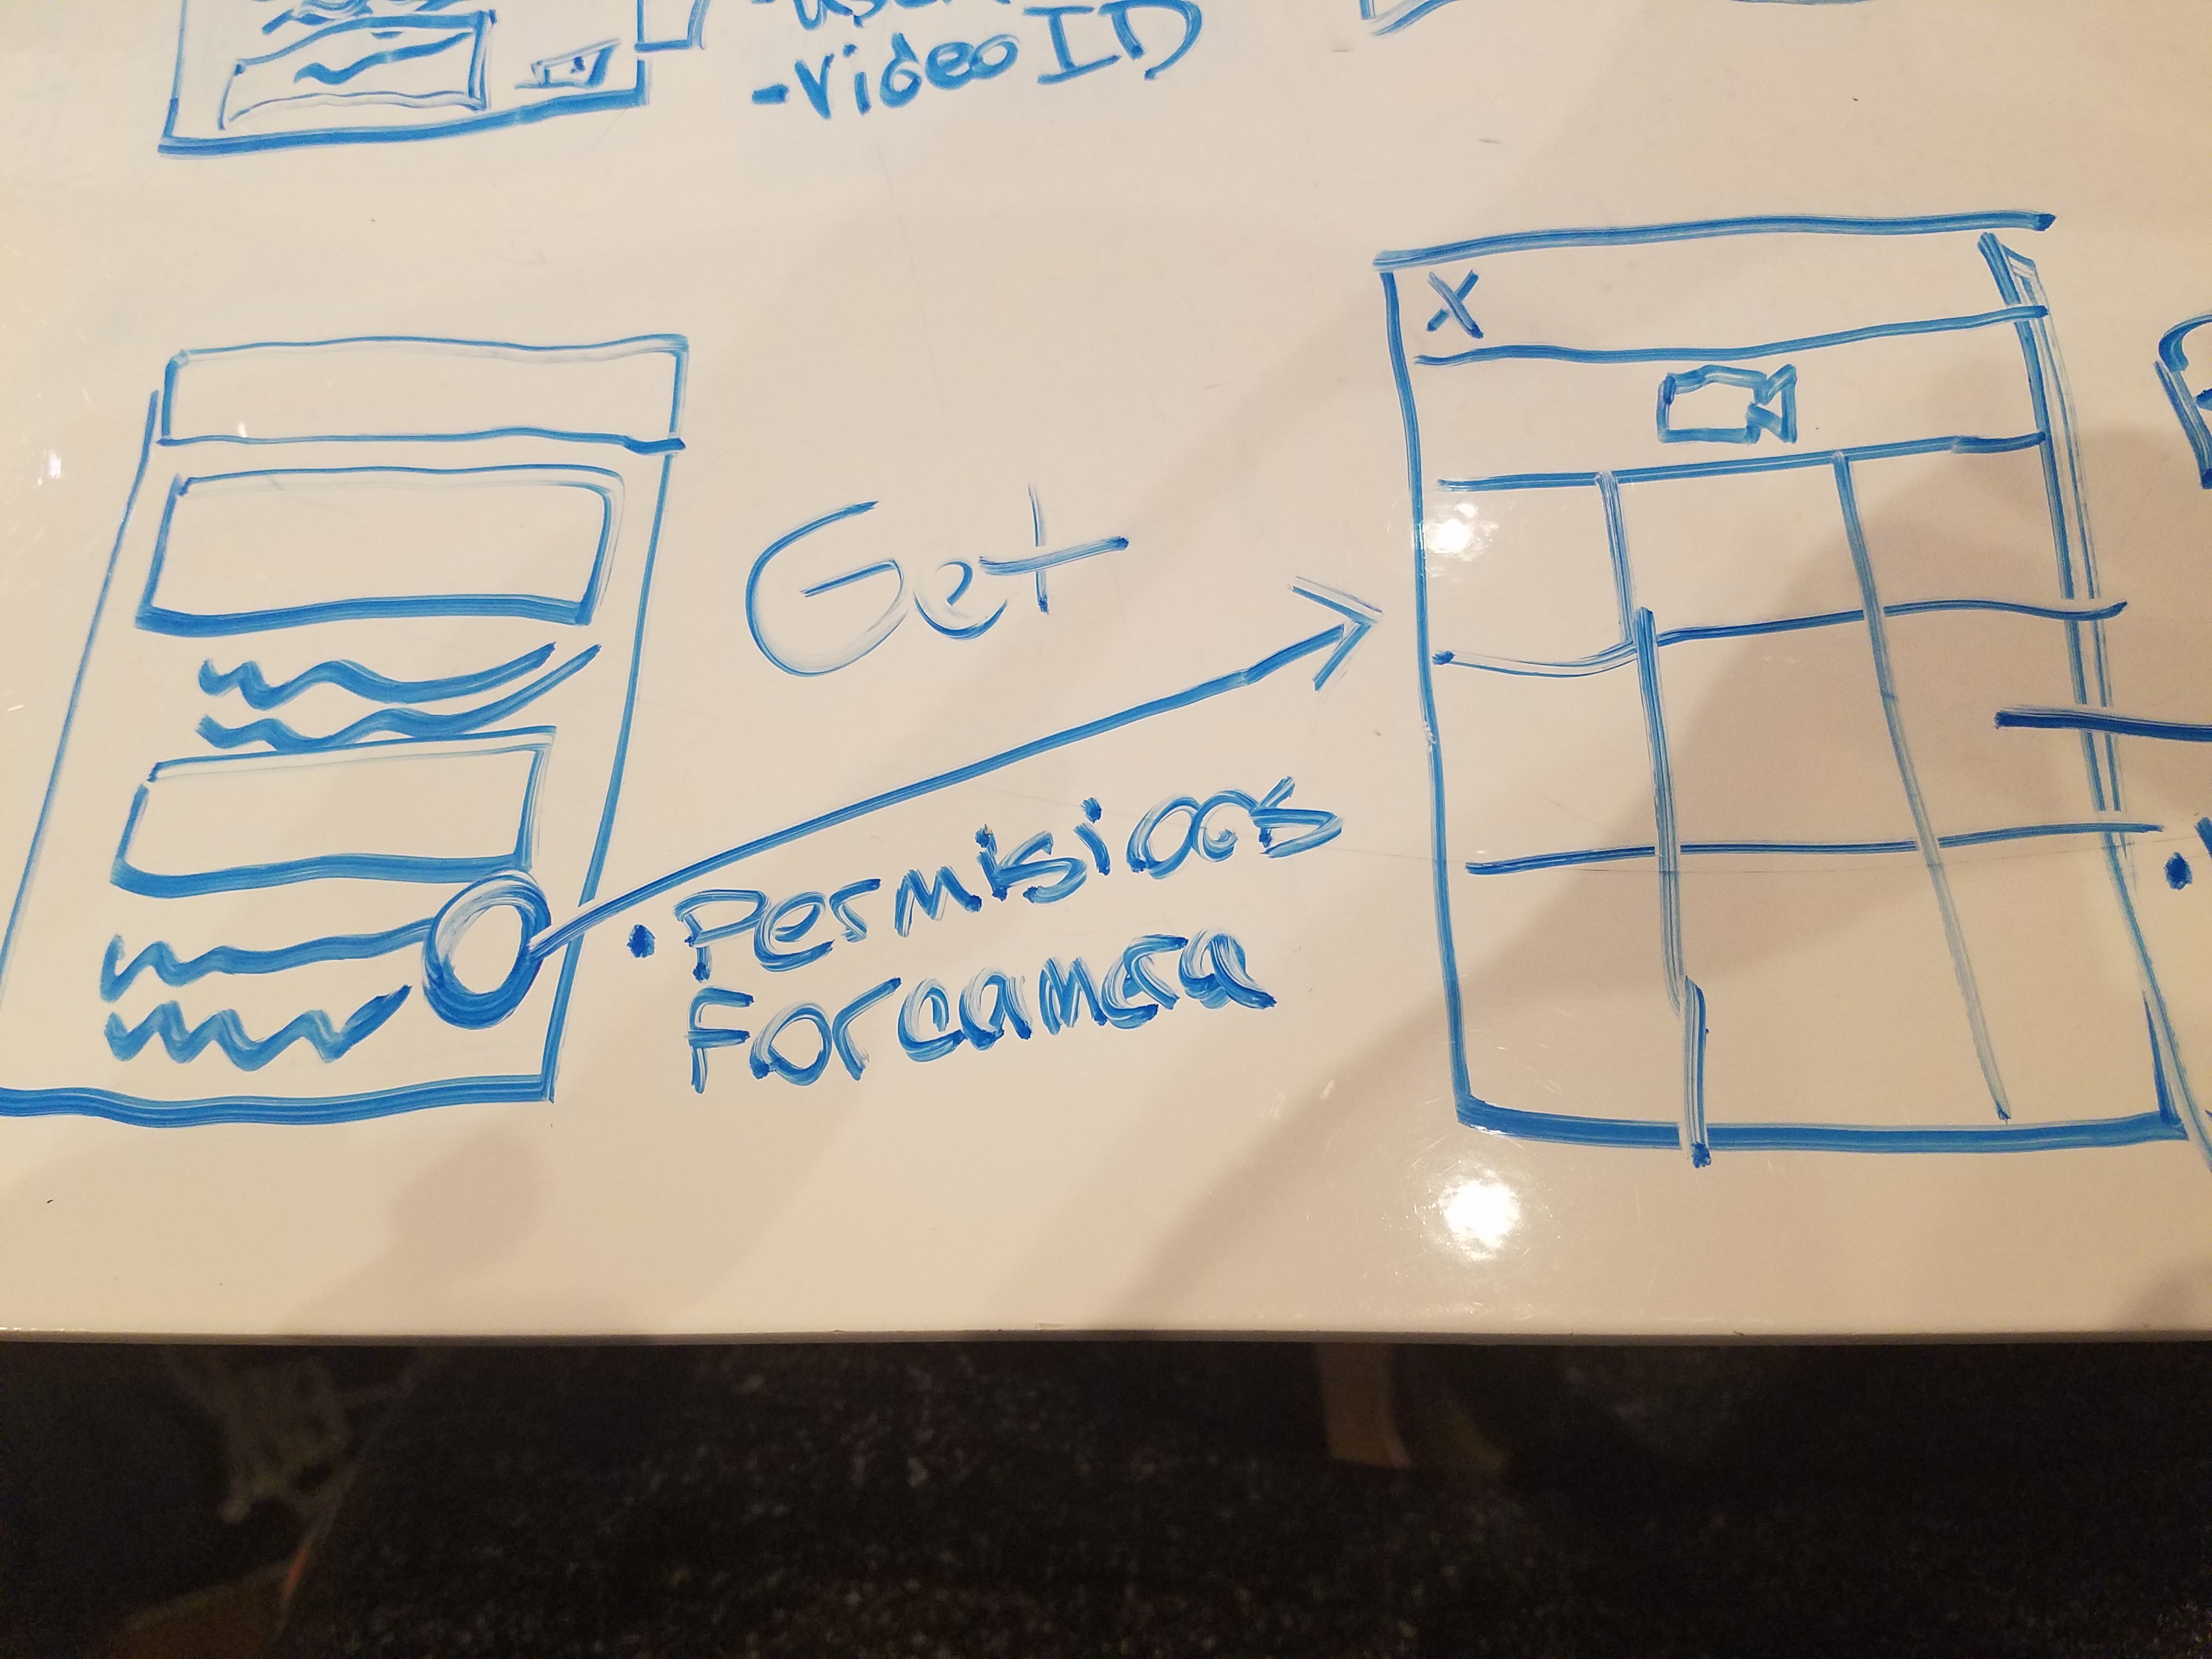 -Video ID
X
Get
• Permisions
For camera